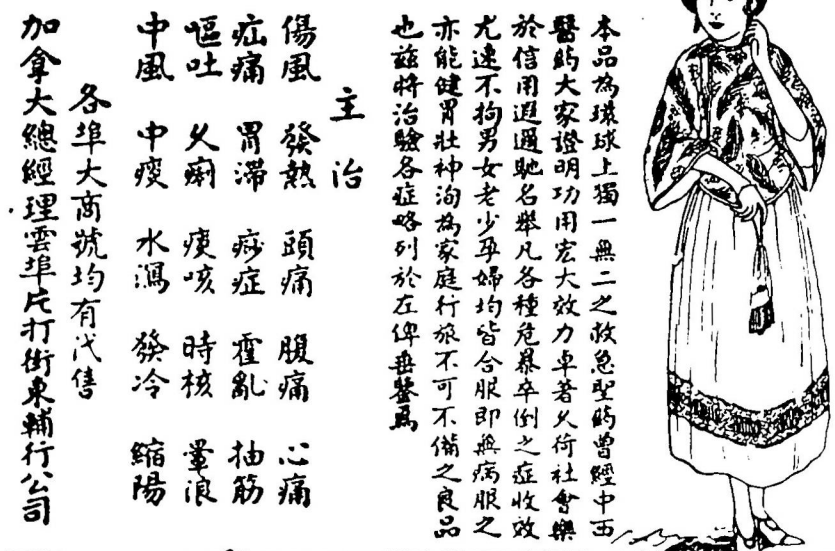 本品為環球上獨一無二之救急聖葯曾經中西
醫葯大家證明功用宏大效力卓著久荷社會樂
於信用遐邇馳名舉凡各種危暴卒倒之症收效
尤速不拘男女老少孕婦均皆合服即無病服之
亦能健胃壯神洵為家庭行旅不可不備之良品
也茲將治驗各症略列於左俾垂鑒焉
主治
傷風 發熱 頭痛 腹痛 心痛
疝痛 胃滯 痧症 霍亂 抽筋
嘔吐 久痢 痰咳 時核 暈浪
中風 中痰 水瀉 發冷 縮陽
各埠大商號均有代售
加拿大總經理雲埠片打街東輔行公司